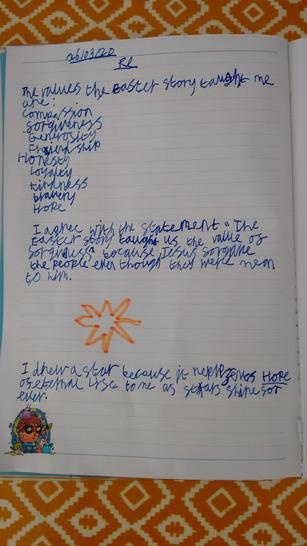 26/03/20
RE
The values the easter story taught me
are:
compassion
Sorgiveness
Generosity
Friendship
Honesty
loyalty
kindness
bravery
Hope
I agree with the statement "The
Easter story taught us the value of
Sorgivness" because Jesus sorgave
the people even though they were mean
to him.
I drew a star because it
of eternal lise to me as stars shine sor
ever.